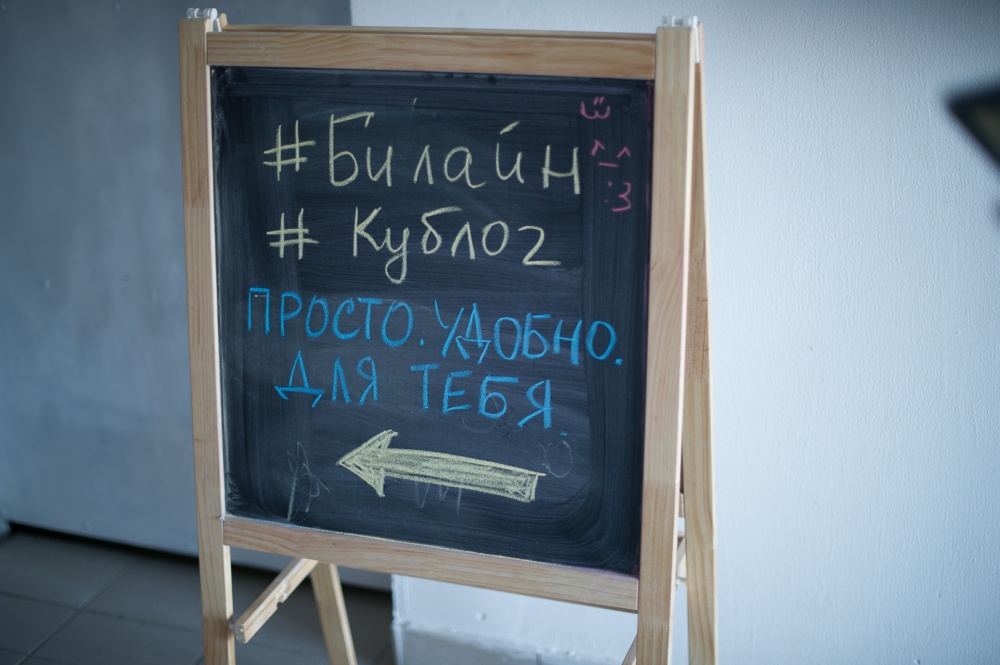 #Билайн
#Кублог
ПРОСТО. УДОБНО.
ДЛЯ ТЕБЯ.